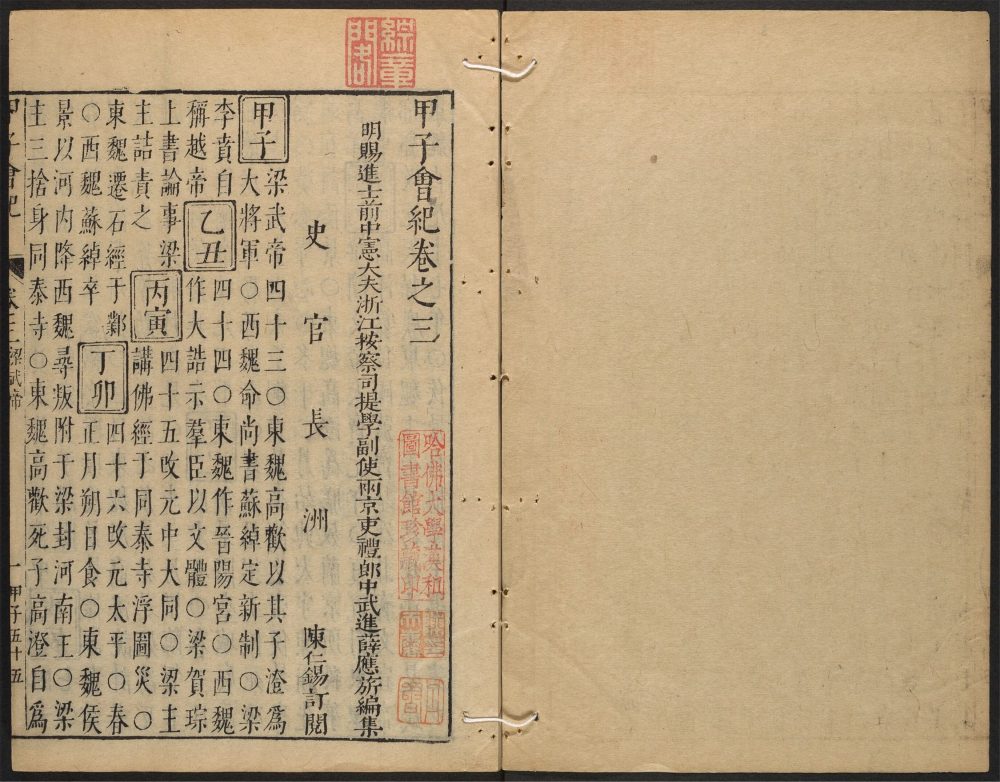 甲子會紀卷之三
明賜進士前中憲大夫浙江按察司提學副使兩京吏禮郎中武進薛應旂編集
史官長洲陳仁錫訂閱
甲子梁武帝四十三○東魏高歡以其子澄為
大將軍○西魏命尚書蘇綽定新制○梁
李賁自
稱越帝乙丑四十四○東魏作晉陽宮○西魏
作大誥示羣臣以文體○梁賀琮
上書論事梁
主詰責之丙寅四十五改元中大同○梁主
講佛經于同泰寺浮圖災○
東魏遷石經于鄴丁卯四十六改元太平○春
○西魏蘇綽卒正月朔日食○東魏侯
景以河內降西魏尋叛附于梁封河南王○梁
主三捨身同泰寺○東魏高歡死子高澄自為
甲子會紀 卷三 梁武帝 一 甲子五十五
哈佛大學
圖書館珍藏印